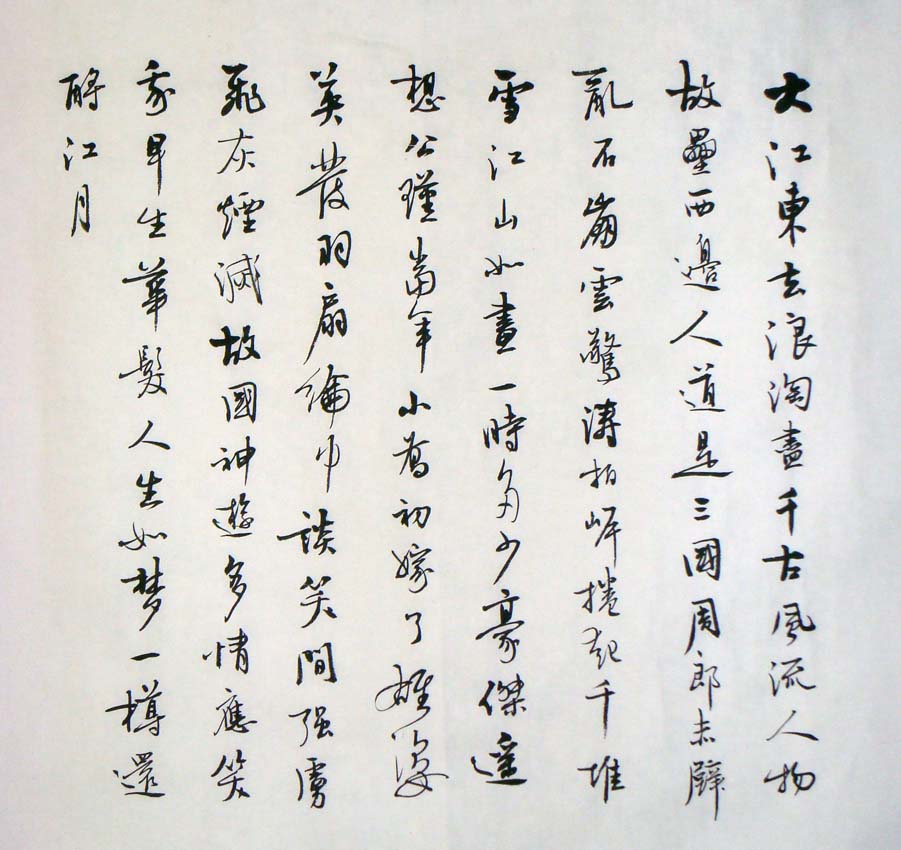 大江東去浪淘盡千古風流人物
故壘西邊人道是三國周郎赤壁
亂石崩雲驚濤拍岸捲起千堆
雪江山如畫一時多少豪傑遙
想公瑾當年小喬初嫁了雄姿
英發羽扇綸巾談笑間强虜
飛灰煙滅故國神遊多情應笑
我早生華髮人生如梦一樽還
酹江月